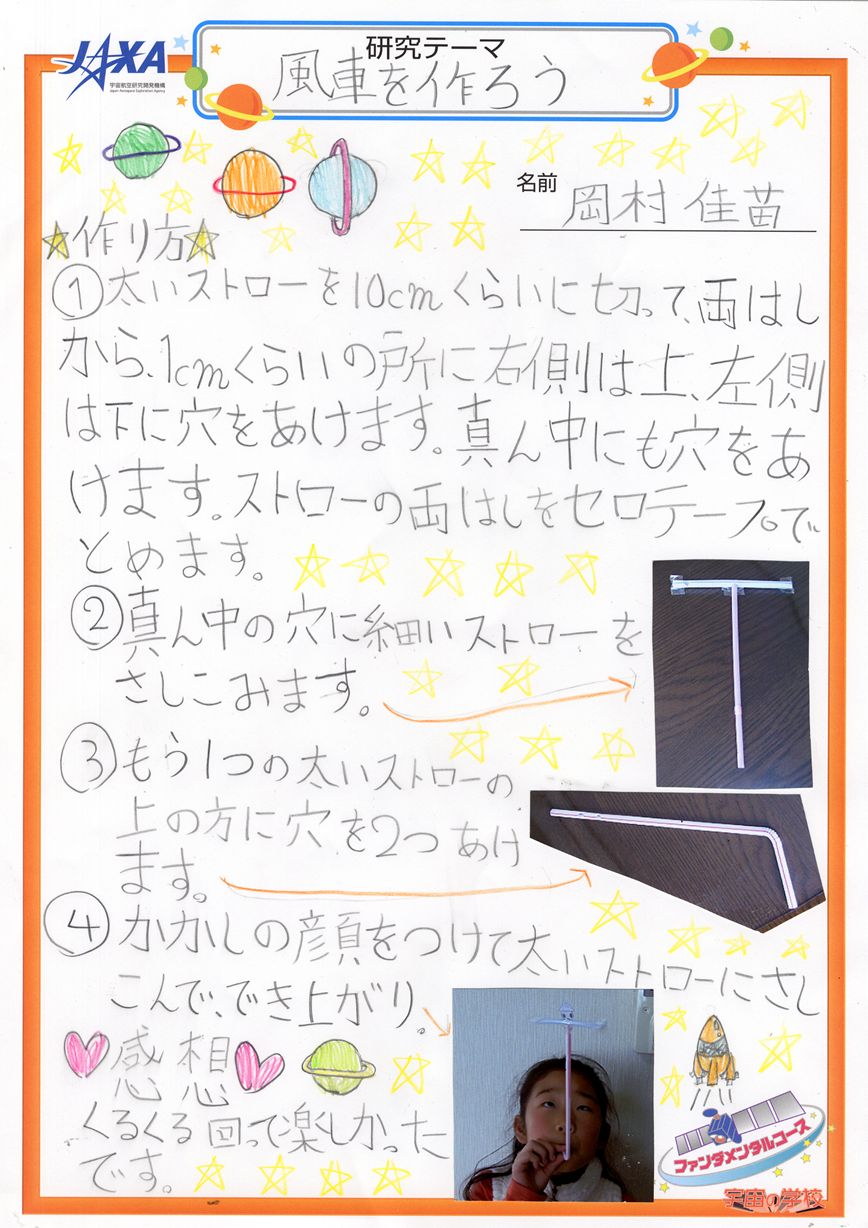 JAXA
宇宙航空研究開発機構
Japan Aerospace Exploration Agency
研究テーマ
風車を作ろう
名前 岡村 佳苗
作り方
① 太いストローを10cmくらいに切って、両はし
から、1cmくらいの所に右側は上、左側
は下に穴をあけます。真ん中にも穴をあ
けます。ストローの両はしをセロテープで
とめます。
② 真ん中の穴に細いストローを
さしこみます。
③ もう1つの太いストローの
上の方に穴を2つあけ
ます。
④ かかしの顔をつけて太いストローにさし
こんで、でき上がり。
感想
くるくる回って楽しかった
です。
ファンダメンタルコース
宇宙の学校